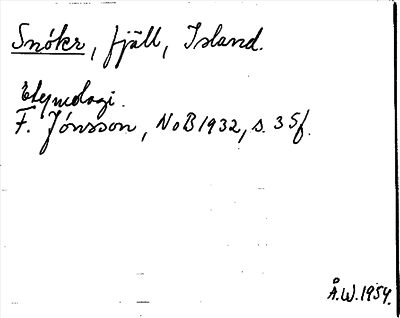 Snókr, fjäll, Island.
Etymologi.
F. Jónsson, NoB 1932, s. 35f.
Å.W. 1954.